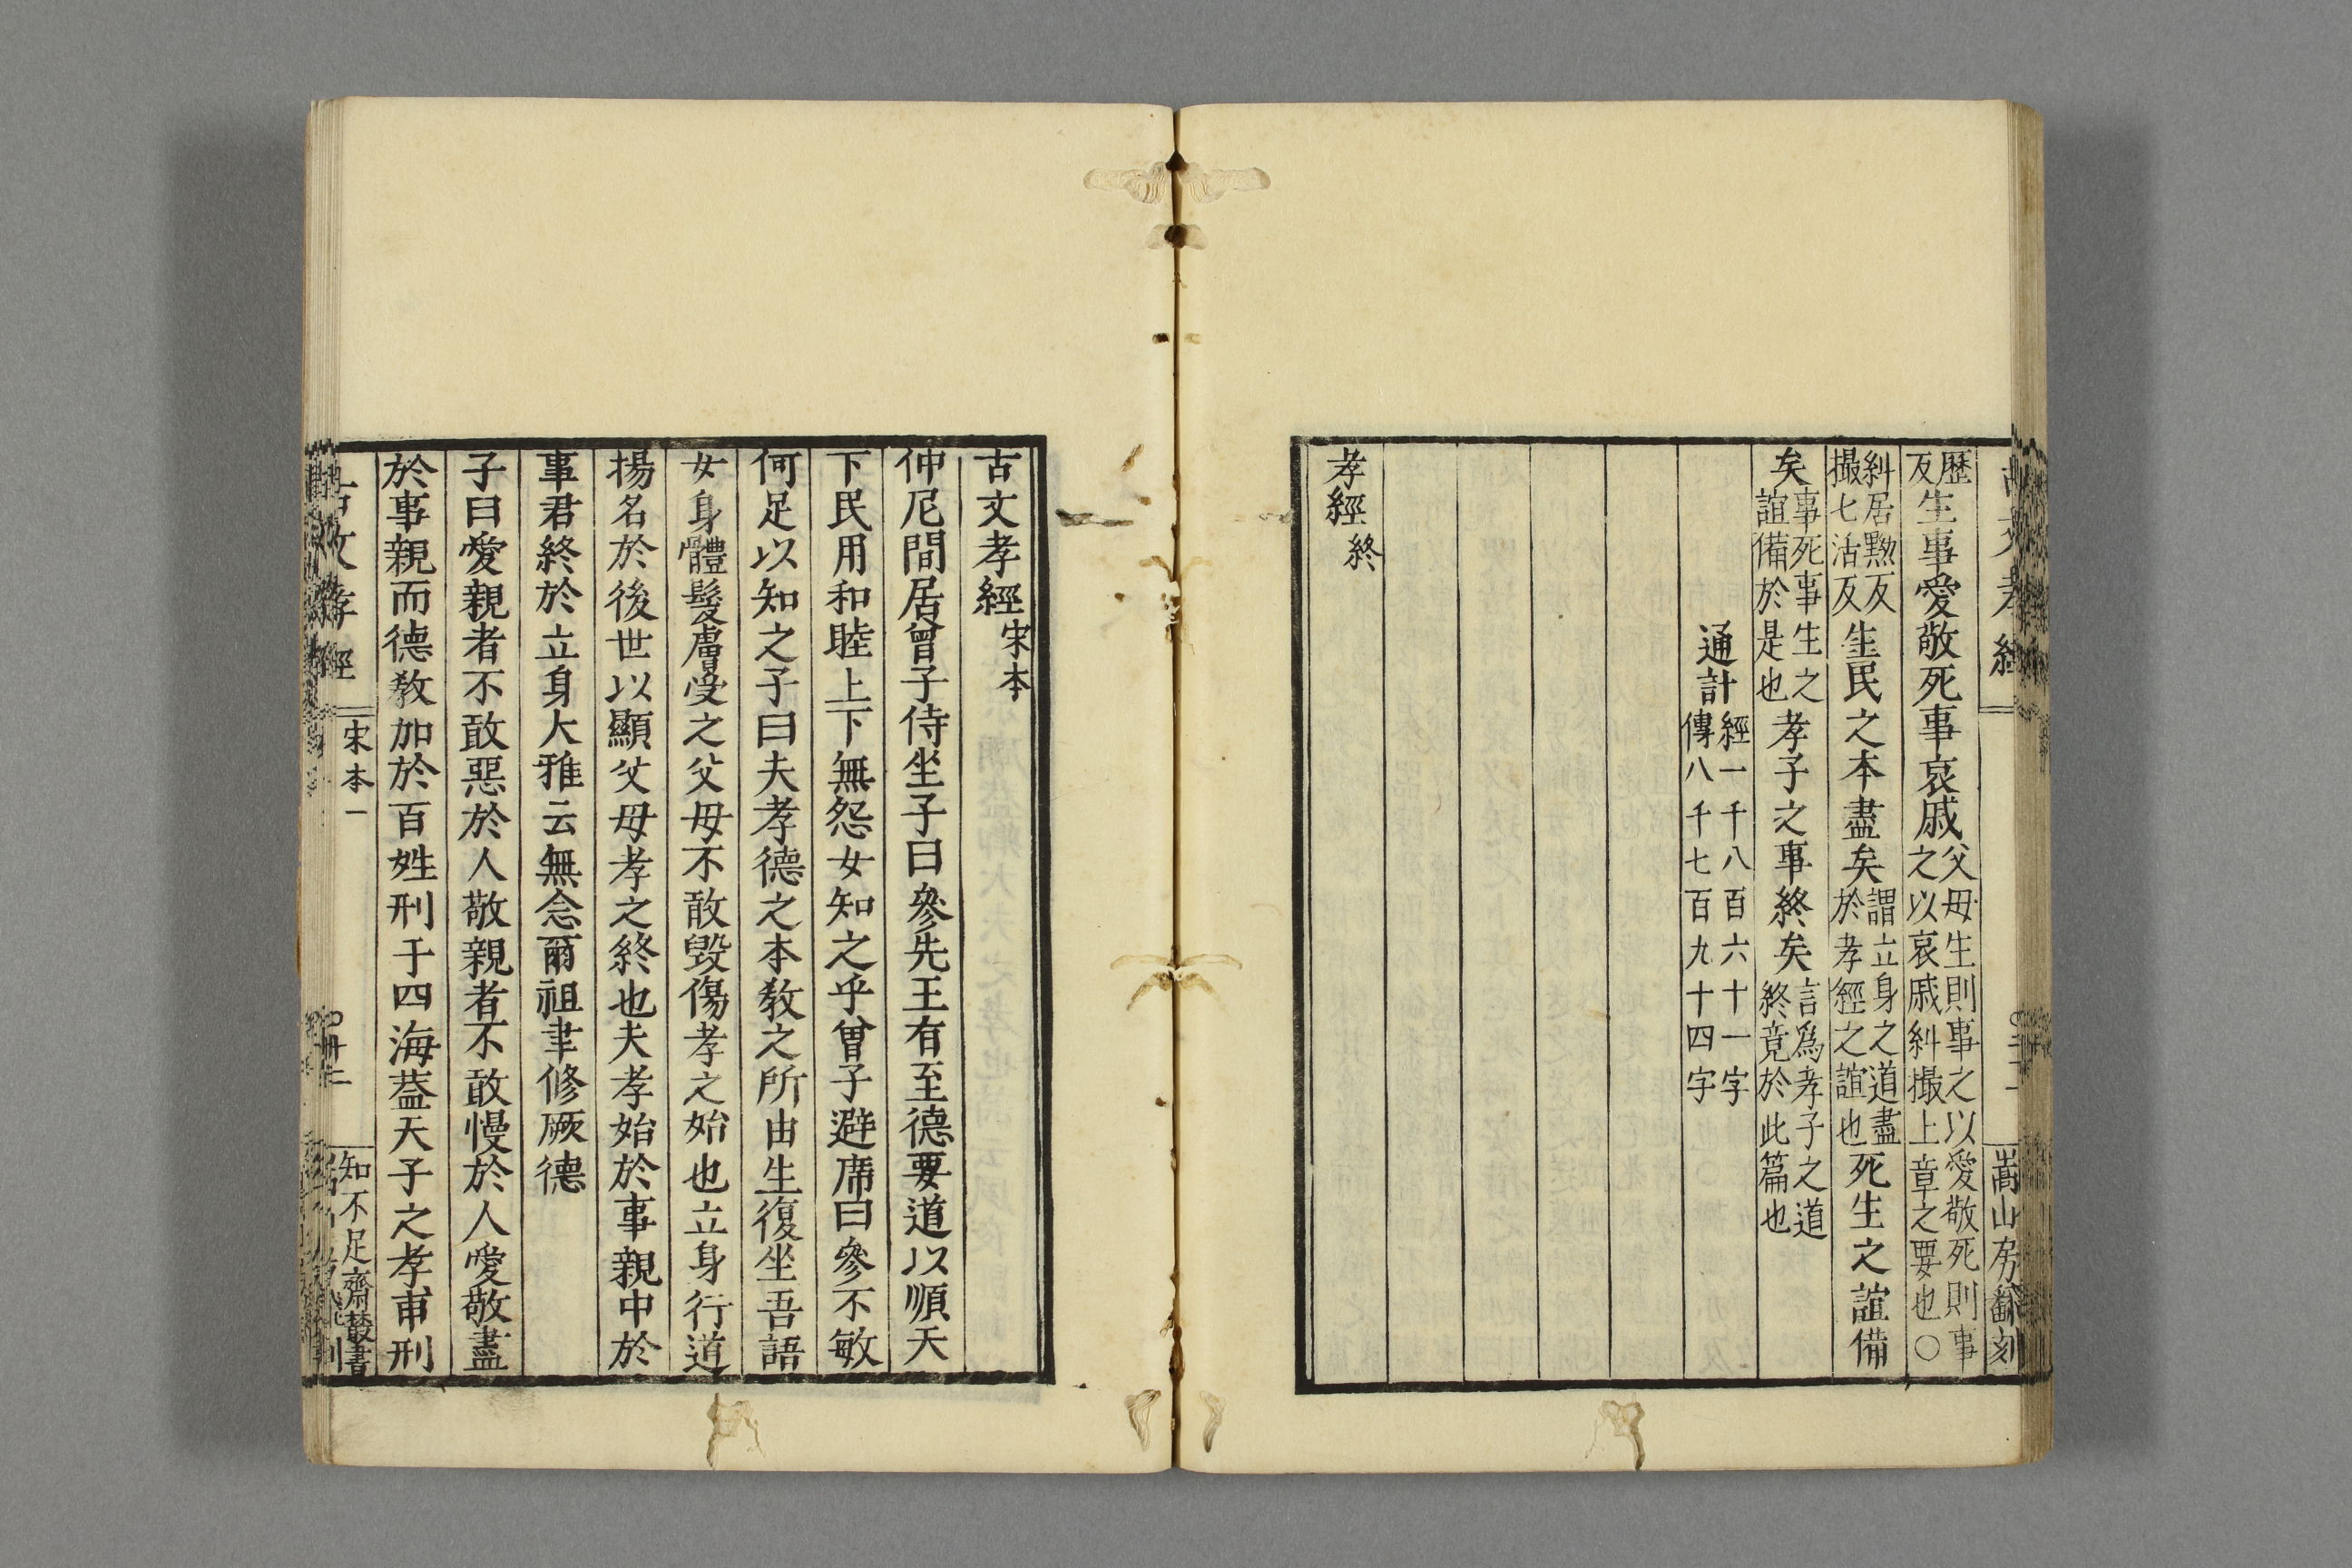 古文孝經
嵩山房翻刻
歷反生事愛敬死事哀戚父母生則事之以愛敬死則事之以哀戚糾撮上章之要也○
糾居黝反撮七活反生民之本盡矣謂立身之道盡於孝經之誼也死生之誼備
矣事死事生之誼備於是也孝子之事終矣言爲孝子之道終竟於此篇也
通計經一千八百六十一字傳八千七百九十四字
孝經終
古文孝經宋本
仲尼閒居曾子侍坐子曰參先王有至德要道以順天
下民用和睦上下無怨女知之乎曾子避席曰參不敏
何足以知之子曰夫孝德之本敎之所由生復坐吾語
女身體髮膚受之父母不敢毀傷孝之始也立身行道
揚名於後世以顯父母孝之終也夫孝始於事親中於
事君終於立身大雅云無念爾祖聿修厥德
子曰愛親者不敢惡於人敬親者不敢慢於人愛敬盡
於事親而德敎加於百姓刑于四海蓋天子之孝甫刑
古文孝經
宋本一
知不足齋叢書